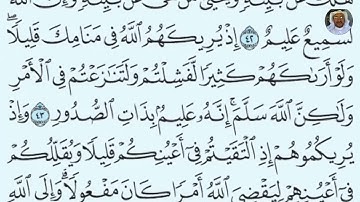 هَلَكَ عَنۢ بَيِّنَةٖ وَيَحۡيَىٰ مَنۡ حَيَّ عَنۢ بَيِّنَةٖۗ وَإِنَّ ٱللَّهَ
لَسَمِيعٌ عَلِيمٌ ٤٢ إِذۡ يُرِيكَهُمُ ٱللَّهُ فِي مَنَامِكَ قَلِيلٗاۖ
وَلَوۡ أَرَىٰكَهُمۡ كَثِيرٗا لَّفَشِلۡتُمۡ وَلَتَنَٰزَعۡتُمۡ فِي ٱلۡأَمۡرِ
وَلَٰكِنَّ ٱللَّهَ سَلَّمَۚ إِنَّهُۥ عَلِيمُۢ بِذَاتِ ٱلصُّدُورِ ٤٣ وَإِذۡ
يُرِيكُمُوهُمۡ إِذِ ٱلۡتَقَيۡتُمۡ فِيٓ أَعۡيُنِكُمۡ قَلِيلٗا وَيُقَلِّلُكُمۡ
فِيٓ أَعۡيُنِهِمۡ لِيَقۡضِيَ ٱللَّهُ أَمۡرٗا كَانَ مَفۡعُولٗاۗ وَإِلَى ٱللَّهِ